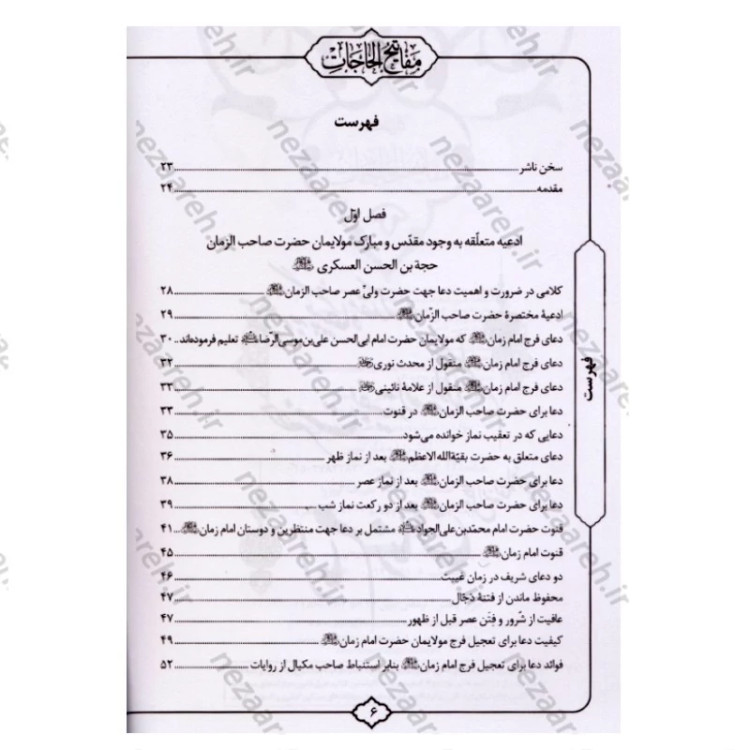 مفاتیح الحاجات
فهرست
سخن ناشر ۲۳
مقدمه ۲۴
فصل اوّل
ادعیه متعلّقه به وجود مقدّس و مبارک مولایمان حضرت صاحب الزمان
حجة بن الحسن العسکری
کلامی در ضرورت و اهمیت دعا جهت حضرت ولیّ عصر صاحب الزمان ۲۸
ادعیهٔ مختصرهٔ حضرت صاحب الزمان ۲۹
دعای فرج امام زمان که مولایمان حضرت امام ابی‌الحسن علی‌بن‌موسی‌الرّضا تعلیم فرموده‌اند ۳۰
دعای فرج امام زمان منقول از محدث نوری ۳۲
دعای فرج امام زمان منقول از علامهٔ نائینی ۳۳
دعا برای حضرت صاحب الزمان در قنوت ۳۳
دعایی که در تعقیب نماز خوانده می‌شود ۳۵
دعای متعلق به حضرت بقیّةالله‌الاعظم بعد از نماز ظهر ۳۶
دعا برای حضرت صاحب الزمان بعد از نماز عصر ۳۸
دعا برای حضرت صاحب الزمان بعد از دو رکعت نماز شب ۳۹
قنوت حضرت امام محمّدبن‌علی‌الجواد مشتمل بر دعا جهت منتظرین و دوستان امام زمان ۴۱
قنوت امام زمان ۴۵
دو دعای شریف در زمان غیبت ۴۶
محفوظ ماندن از فتنهٔ دجّال ۴۷
عافیت از شُرور و فِتَن عصر قبل از ظهور ۴۷
کیفیت دعا برای تعجیل فرج مولایمان حضرت امام زمان ۴۹
فوائد دعا برای تعجیل فرج امام زمان بنابر استنباط صاحب مکیال از روایات ۵۲
فهرست
۶
nezaareh.ir